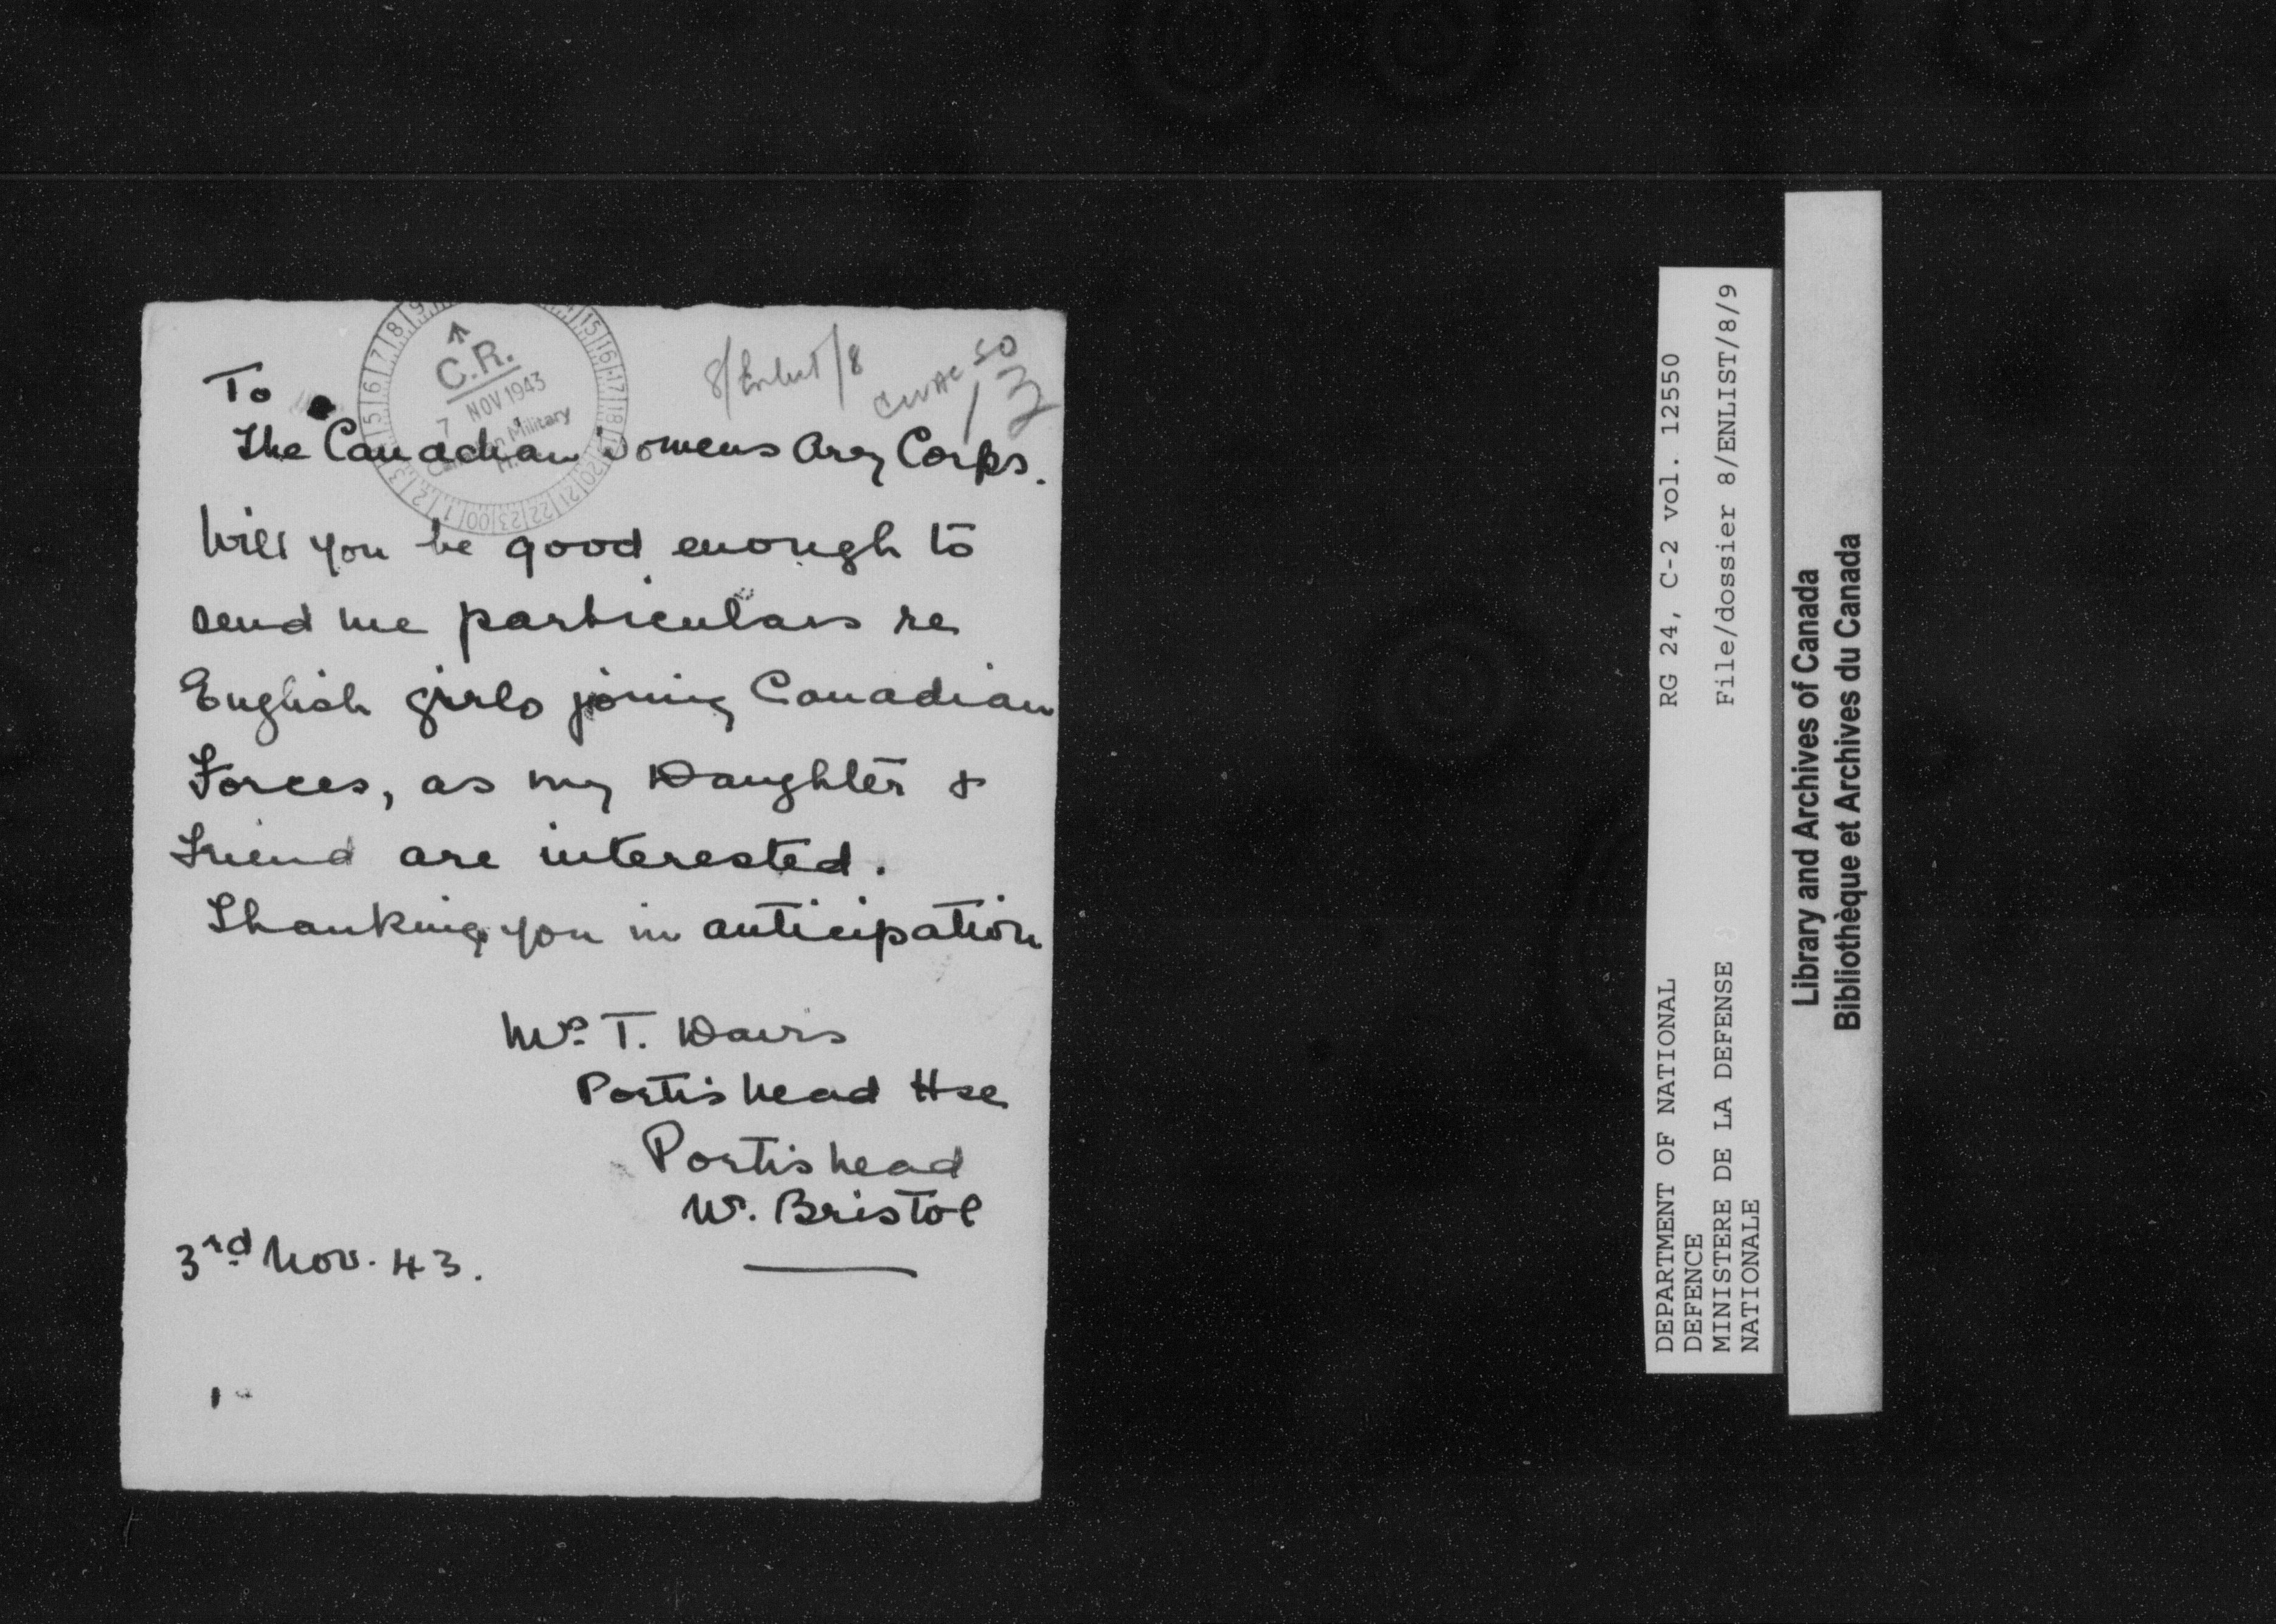 To
The Canadian Womens Army Corps.
Will you be good enough to
send me particulars re
English girls joining Canadian
Forces, as my Daughter &
Friend are interested.
Thanking you in anticipation
Mrs. T. Davis
Portishead Hse
Portishead
Nr. Bristol
3rd Nov. 43.
C.R.
7 NOV 1943
Canadian Military
8/Enlist/8
CWAC
RG 24, C-2 vol. 12550
File/dossier 8/ENLIST/8/9
DEPARTMENT OF NATIONAL
DEFENCE
MINISTERE DE LA DEFENSE
NATIONALE
Library and Archives of Canada
Bibliothèque et Archives du Canada